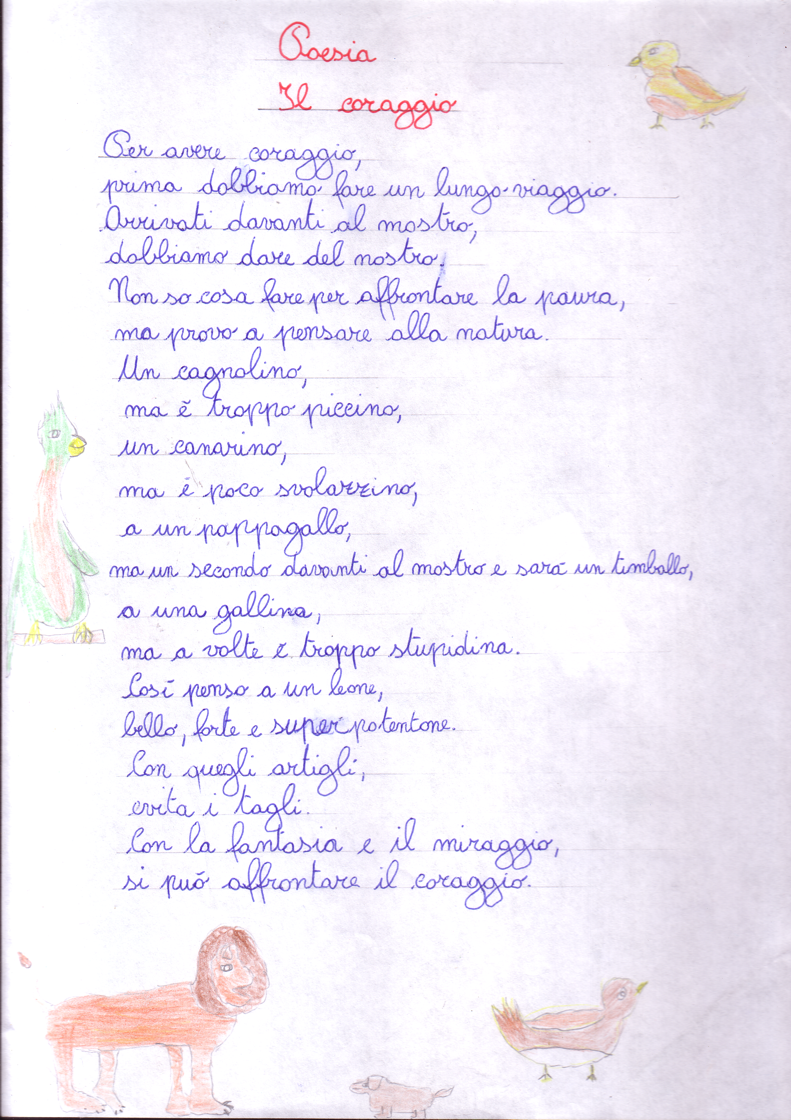 Poesia
Il coraggio
Per avere coraggio,
prima dobbiamo fare un lungo viaggio.
Arrivati davanti al mostro,
dobbiamo dare del nostro.
Non so cosa fare per affrontare la paura,
ma provo a pensare alla natura.
Un cagnolino,
ma è troppo piccino,
un canarino,
ma è poco svolazzino,
a un pappagallo,
ma un secondo davanti al mostro e sarà un timballo,
a una gallina,
ma a volte è troppo stupidina.
Così penso a un leone,
bello, forte e superpotentone.
Con quegli artigli,
evita i tagli.
Con la fantasia e il miraggio,
si può affrontare il coraggio.